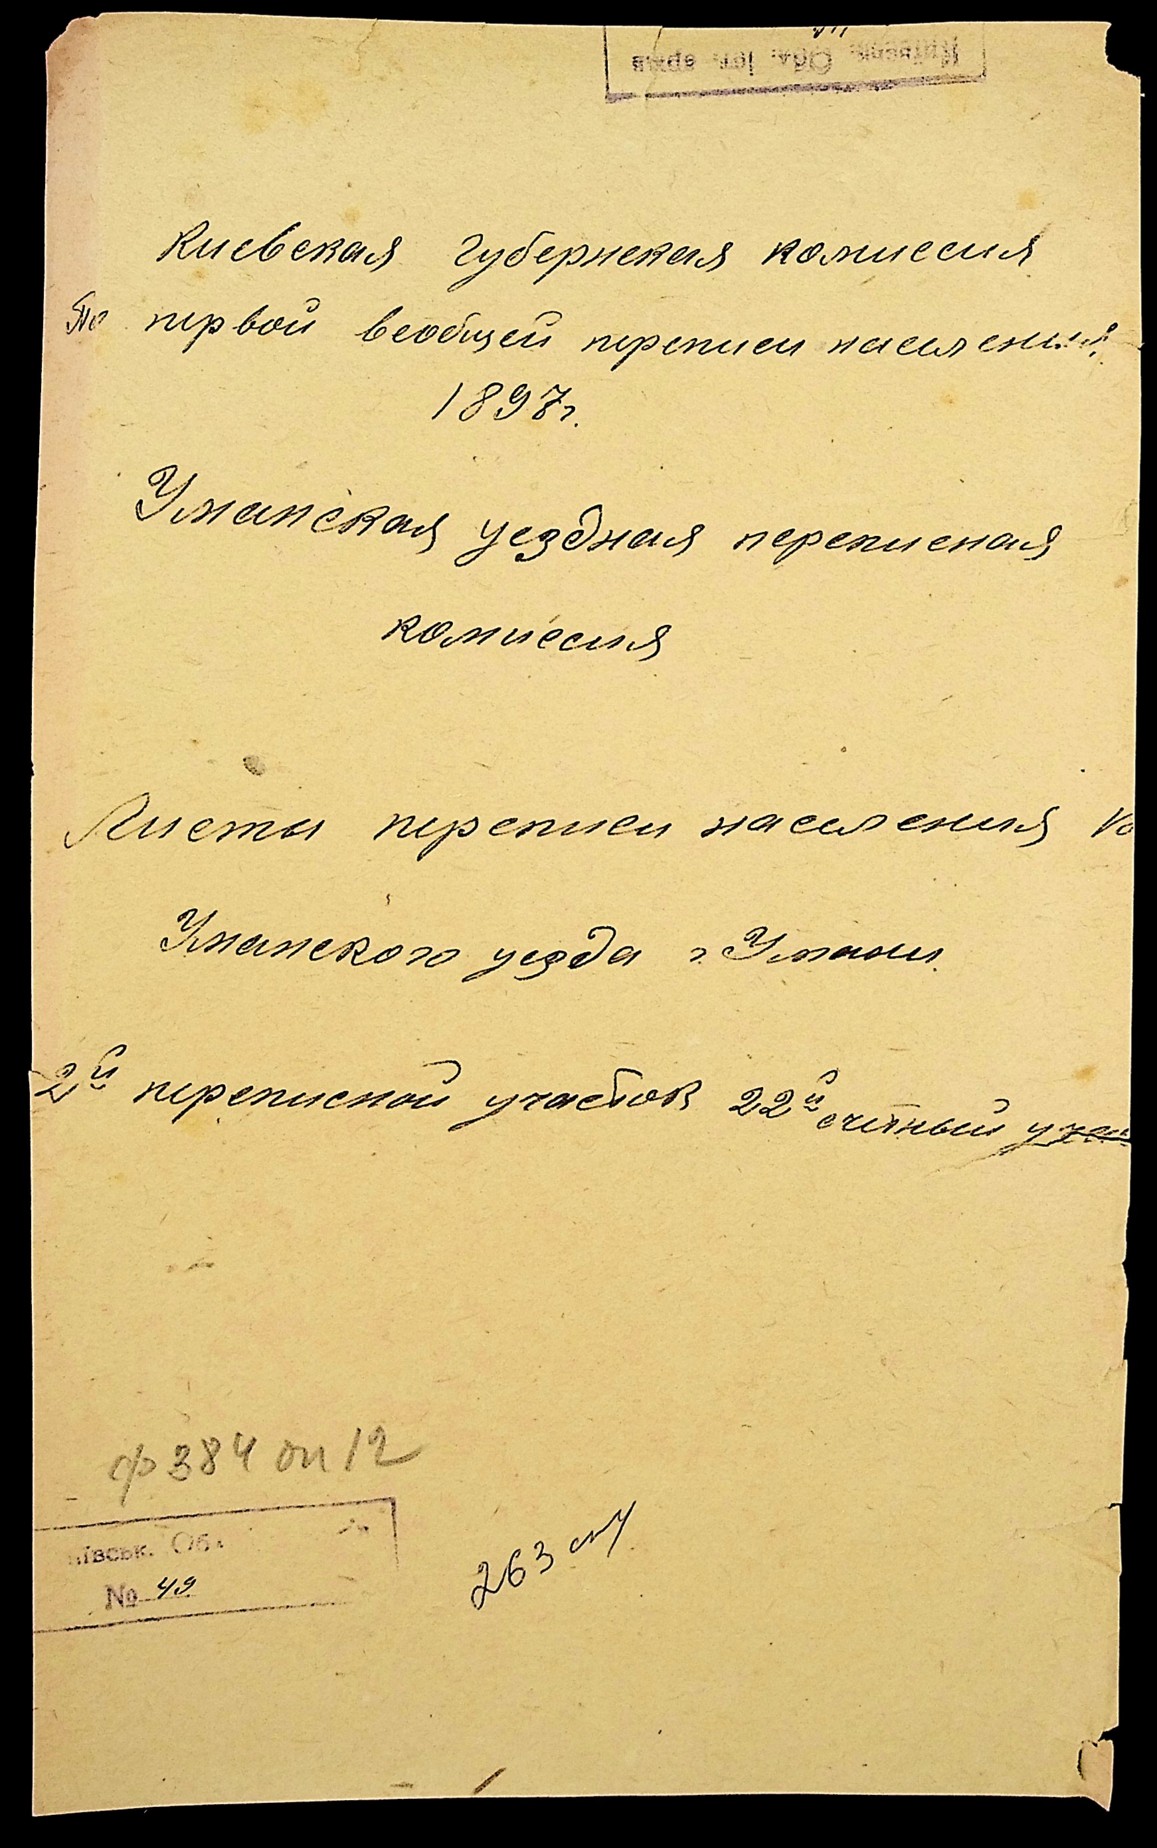 Київськ. Обл. Іст. архів
Киевская губернская комиссия
По первой всеобщей переписи населения
1897 г.
Уманская уездная переписная
комиссия
Листы переписи населения
Уманского уезда г. Умани.
2й переписной участок 22й счётный учас
ф 384 оп 12
ївськ. Обл
№ 49
263